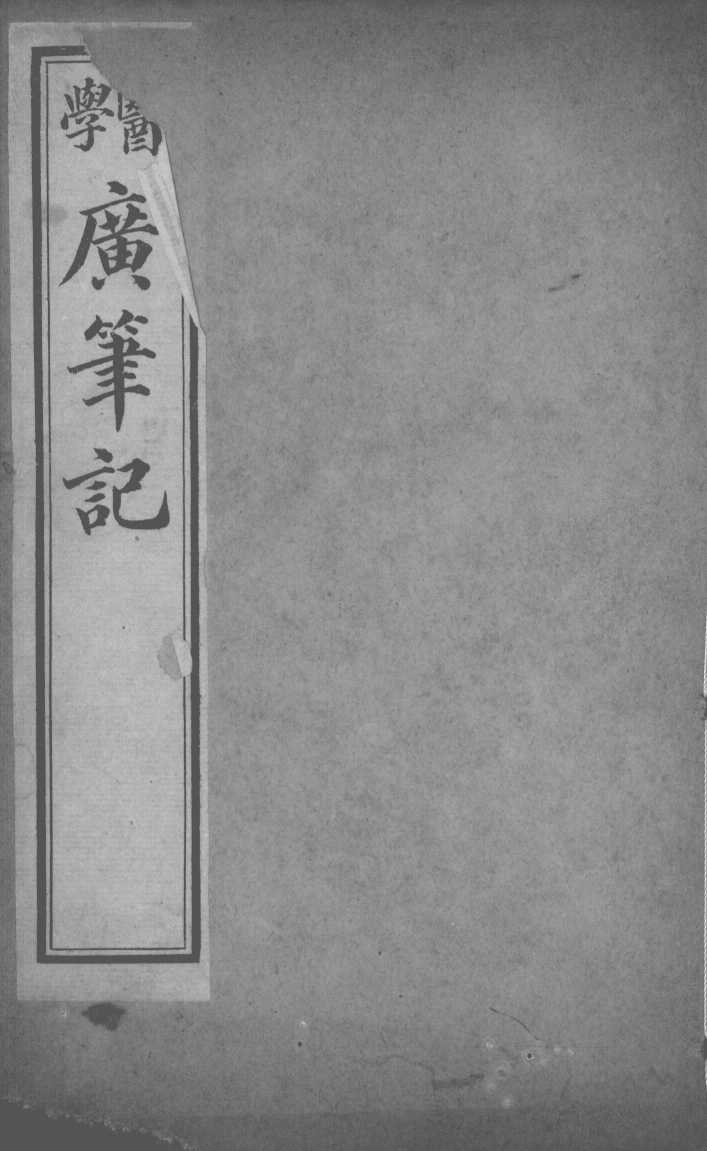 醫學
廣筆記